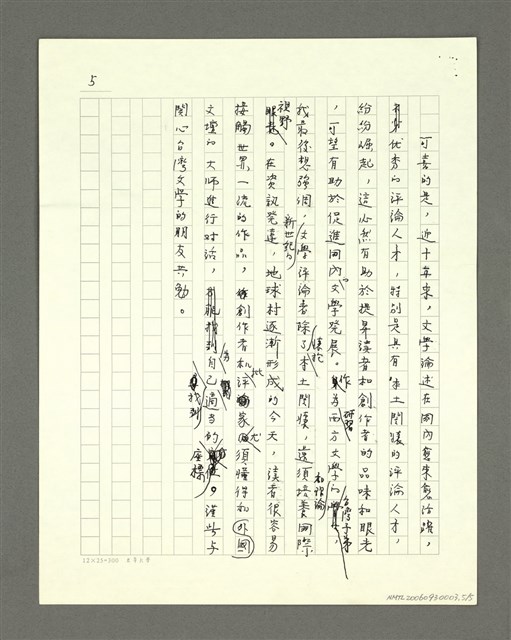 5
可喜的是，近十年來，文學論述在國內愈來愈活躍，
優秀的評論人才，特別是具有本土關懷的評論人才，
紛紛崛起，這必然有助於提昇讀者和創作者的品味和眼光
，可望有助於促進國內文學發展。作為西方文學的
研習 和理論 台灣子弟
我最後想強調，新世紀的文學評論者除了本土關懷，還須培養國際
視野。在資訊發達，地球村逐漸形成的今天，讀者很容易
接觸世界一流的作品，創作者和批評家尤須懂得和外國
文壇的大師進行對話，為自己找到適當的座標。謹此与
關心台灣文學的朋友共勉。
12×25=300
NMTL20060930003.5/5